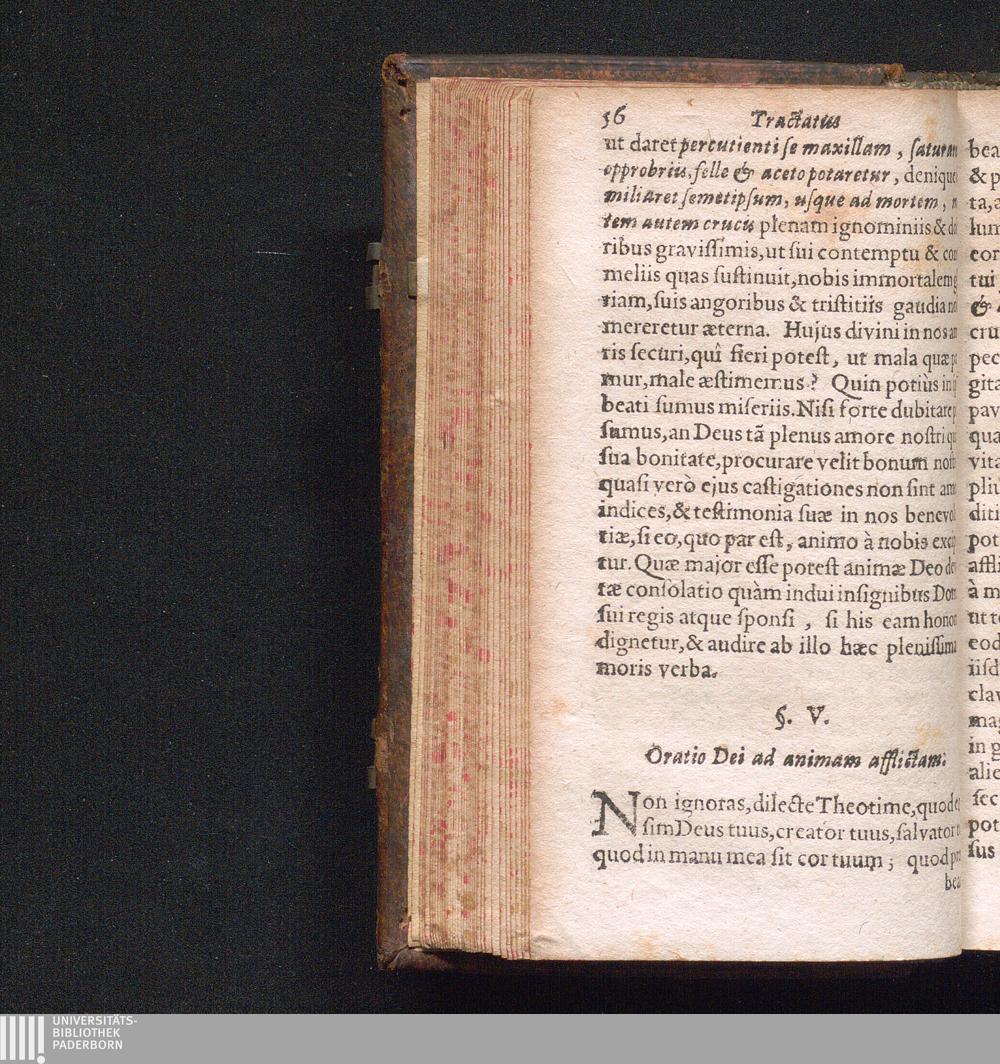 56 Tractatus
ut daret percutienti se maxillam, saturan
opprobriis, felle & aceto potaretur, denique
miliaret semetipsum, usque ad mortem,
tem autem crucis plenam ignominiis &
ribus gravissimis, ut sui contemptu &
meliis quas sustinuit, nobis immortalem
riam, suis angoribus & tristitiis gaudia
mereretur æterna. Hujus divini in nos
ris securi, quî fieri potest, ut mala quæ
mur, male æstimemus? Quin potiùs in
beati sumus miseriis. Nisi forte dubitare
sumus, an Deus tã plenus amore nostri
sua bonitate, procurare velit bonum
quasi verò ejus castigationes non sint
indices, & testimonia suæ in nos
tiæ, si eo, quo par est, animo à nobis
tur. Quæ major esse potest animæ Deo
tæ consolatio quàm indui insignibus
sui regis atque sponsi, si his eam
dignetur, & audire ab illo hæc
moris verba.
§. V.
Oratio Dei ad animam afflictam.
Non ignoras, dilecte Theotime, quod
sim Deus tuus, creator tuus, salvator
quod in manu mea sit cor tuum; quod
bea
bea
& p
ta,
lum
cor
tui
&
cru
pec
gita
pav
qua
vita
pliu
diti
pot
affli
à m
ut
eod
iisd
clav
mag
in g
alie
sec
pot
sus
UNIVERSITÄTS-
BIBLIOTHEK
PADERBORN